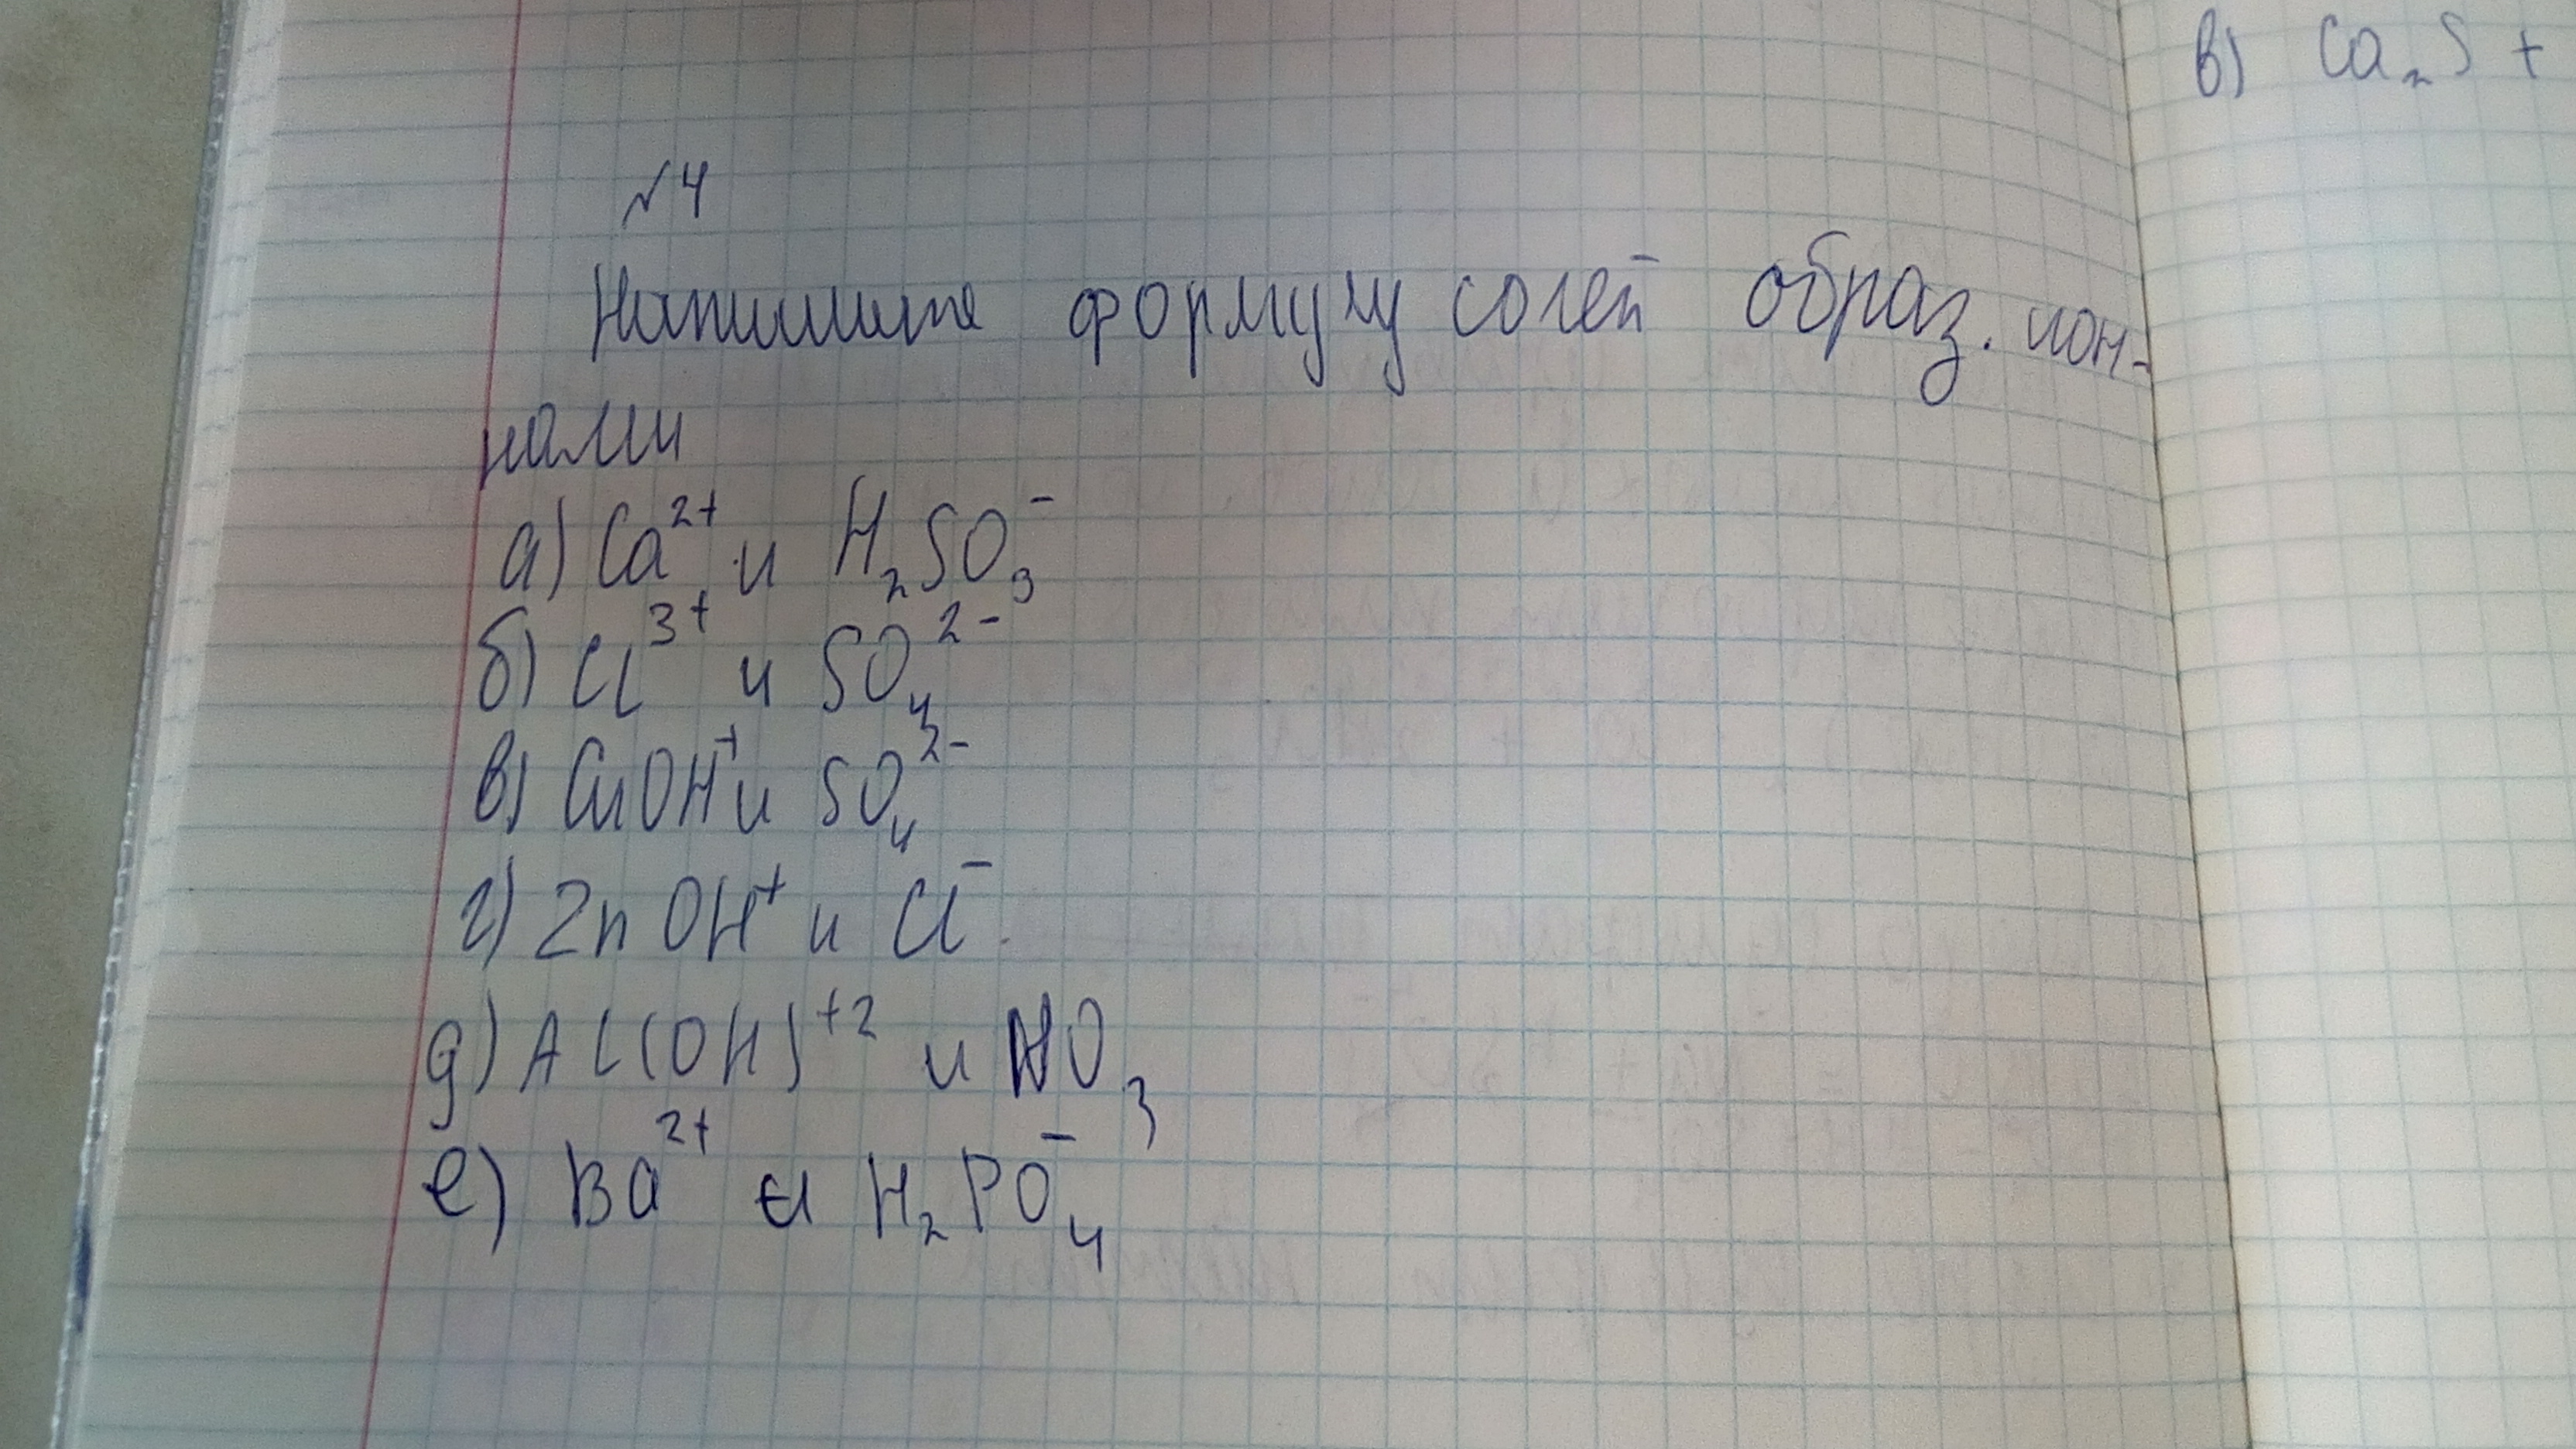 №4
Напишите формулу солей образ. ион-
нами
а) Ca²⁺ и H₂SO₃⁻
б) Cl³⁺ и SO₄²⁻
в) CuOH⁺ и SO₄²⁻
г) Zn OH⁺ и Cl⁻
д) Al(OH)⁺² и NO₃
е) Ba²⁺ и H₂PO₄⁻
в) Ca₂S +